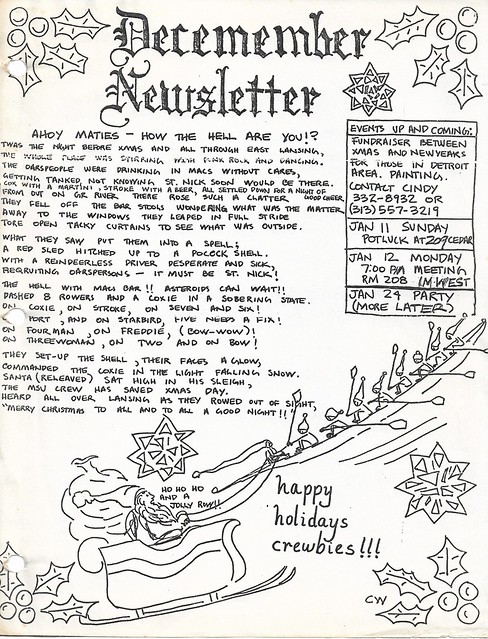 Decemember
Newsletter
AHOY MATIES - HOW THE HELL ARE YOU!?
TWAS THE NIGHT BEFORE XMAS AND ALL THROUGH EAST LANSING,
THE WHOLE PLACE WAS STIRRING WITH PUNK ROCK AND DANCING.
THE OARSPEOPLE WERE DRINKING IN MACS WITHOUT CARES,
GETTING TANKED NOT KNOWING ST. NICK SOON WOULD BE THERE.
COX WITH A MARTINI, STROKE WITH A BEER, ALL SETTLED DOWN FOR A NIGHT OF GOOD CHEER,
FROM OUT ON G.R. RIVER THERE ROSE SUCH A CLATTER,
THEY FELL OFF THE BAR STOOLS WONDERING WHAT WAS THE MATTER.
AWAY TO THE WINDOWS THEY LEAPED IN FULL STRIDE
TORE OPEN TACKY CURTAINS TO SEE WHAT WAS OUTSIDE.
WHAT THEY SAW PUT THEM INTO A SPELL;
A RED SLED HITCHED UP TO A POCOCK SHELL.
WITH A REINDEERLESS DRIVER DESPERATE AND SICK,
RECRUITING OARSPERSONS - IT MUST BE ST. NICK!
THE HELL WITH MACS BAR!! ASTEROIDS CAN WAIT!!
DASHED 8 ROWERS AND A COXIE IN A SOBERING STATE.
ON COXIE, ON STROKE, ON SEVEN AND SIX!
PORT, AND ON STARBIRD, FIVE NEEDS A FIX!
ON FOURMAN, ON FREDDIE, (BOW-WOW)!
ON THREEWOMAN, ON TWO AND ON BOW!
THEY SET-UP THE SHELL, THEIR FACES A GLOW,
COMMANDED THE COXIE IN THE LIGHT FALLING SNOW.
SANTA (RELEAVED) SAT HIGH IN HIS SLEIGH,
THE MSU CREW HAS SAVED XMAS DAY.
HEARD ALL OVER LANSING AS THEY ROWED OUT OF SIGHT,
"MERRY CHRISTMAS TO ALL AND TO ALL A GOOD NIGHT!!"
EVENTS UP AND COMING:
FUNDRAISER BETWEEN
XMAS AND NEWYEARS
FOR THOSE IN DETROIT
AREA. PAINTING.
CONTACT CINDY
332-8932 OR
(313)557-3219
JAN 11 SUNDAY
POTLUCK AT 209 CEDAR
JAN 12 MONDAY
7:00 PM MEETING
RM 208 IM WEST
JAN 24 PARTY
(MORE LATER)
HO HO HO
AND A
JOLLY ROW!!
happy
holidays
crewbies!!!
CW